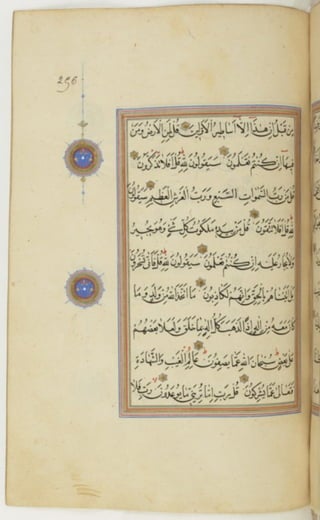 256
مِن قَبْلُ إِنْ هَٰذَا إِلَّا أَسَاطِيرُ الْأَوَّلِينَ قُل لِّمَنِ الْأَرْضُ وَمَن
فِيهَا إِن كُنتُمْ تَعْلَمُونَ سَيَقُولُونَ لِلَّهِ قُلْ أَفَلَا تَذَكَّرُونَ
قُلْ مَن رَّبُّ السَّمَٰوَاتِ السَّبْعِ وَرَبُّ الْعَرْشِ الْعَظِيمِ سَيَقُولُونَ
لِلَّهِ قُلْ أَفَلَا تَتَّقُونَ قُلْ مَن بِيَدِهِ مَلَكُوتُ كُلِّ شَيْءٍ وَهُوَ يُجِيرُ
وَلَا يُجَارُ عَلَيْهِ إِن كُنتُمْ تَعْلَمُونَ سَيَقُولُونَ لِلَّهِ قُلْ فَأَنَّىٰ تُسْحَرُونَ
بَلْ أَتَيْنَاهُم بِالْحَقِّ وَإِنَّهُمْ لَكَاذِبُونَ مَا اتَّخَذَ اللَّهُ مِن وَلَدٍ وَمَا
كَانَ مَعَهُ مِنْ إِلَٰهٍ إِذًا لَّذَهَبَ كُلُّ إِلَٰهٍ بِمَا خَلَقَ وَلَعَلَا بَعْضُهُمْ
عَلَىٰ بَعْضٍ سُبْحَانَ اللَّهِ عَمَّا يَصِفُونَ عَالِمِ الْغَيْبِ وَالشَّهَادَةِ
فَتَعَالَىٰ عَمَّا يُشْرِكُونَ قُل رَّبِّ إِمَّا تُرِيَنِّي مَا يُوعَدُونَ رَبِّ فَلَا